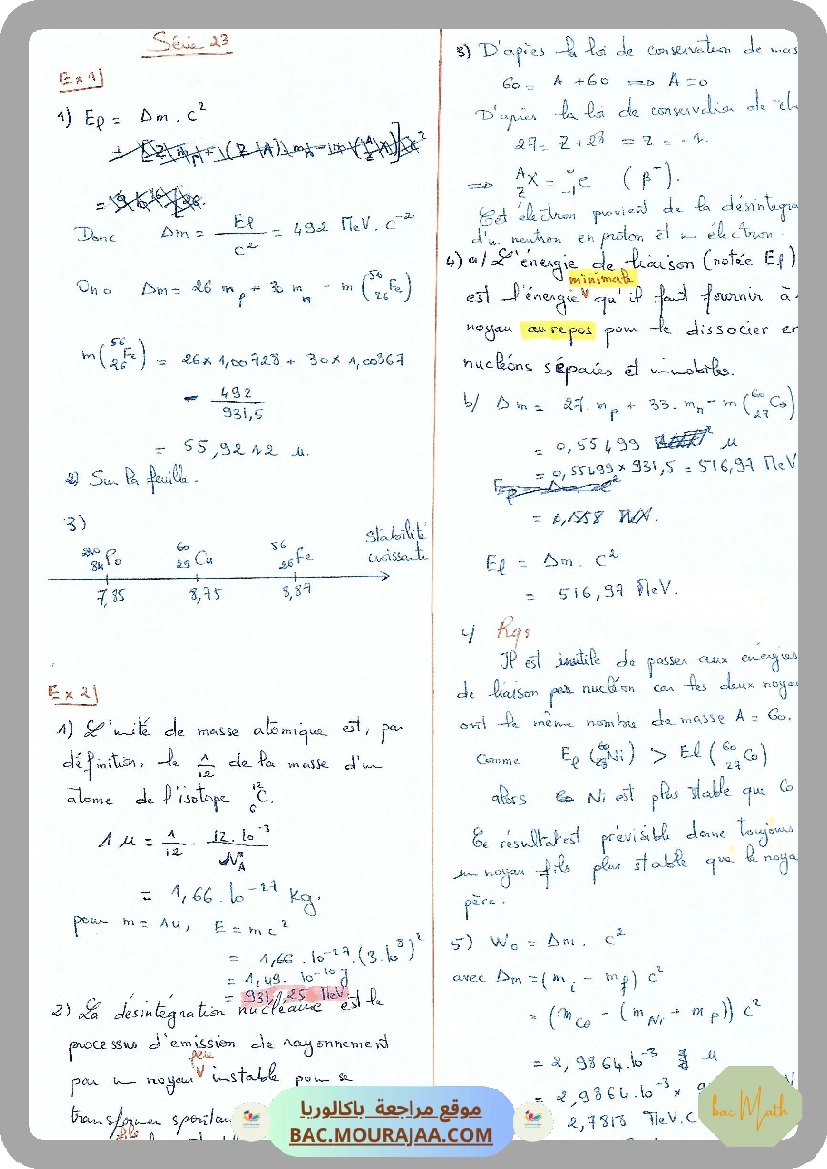 Série 23
Ex 1
1) El = Δm . c²
Donc Δm = El / c² = 492 MeV. c⁻²
On a Δm = 26 mp + 30 mn - m(⁵⁶₂₆Fe)
m(⁵⁶₂₆Fe) = 26 x 1,00728 + 30 x 1,00867
- 492 / 931,5
= 55,9212 u.
2) Sur la feuille.
3)
stabilité
croissante
²¹⁰₈₄Po ⁶⁰₂₉Cu ⁵⁶₂₆Fe
7,85 8,75 8,87
Ex 2
1) L'unité de masse atomique est, par
définition, le 1/12 de la masse d'un
atome de l'isotope ¹²₆C.
1 u = 1/12 . 12.10⁻³ / NA
= 1,66.10⁻²⁷ kg.
pour m = 1u, E = mc²
= 1,66.10⁻²⁷.(3.10⁸)²
= 1,49. 10⁻¹⁰ J
= 931,25 MeV
2) La désintégration nucléaire est le
processus d'émission de rayonnement
père
par un noyau v instable pour se
transformer
3) D'après la loi de conservation de mas
60 = A + 60 => A = 0
D'après la loi de conservation de ch
27 = Z + 28 = Z = -1.
=> ᴬzX = ⁰₋₁e (β⁻).
Cet électron provient de la désintégra
d'un neutron en proton et un électron.
4) a/ L'énergie de liaison (notée El)
minimale
est l'énergie v qu'il faut fournir à
noyau au repos pour le dissocier en
nucléons séparés et immobiles.
b/ Δm = 27. mp + 33. mn - m(⁶⁰₂₇Co)
= 0,55499 u
= 0,55499 x 931,5 = 516,97 MeV
El = Δm . c²
= 516,97 MeV.
c/ Rqs
Il est inutile de passer aux énergies
de liaison par nucléon car les deux noya
ont le même nombre de masse A = 60.
Comme El(⁶⁰₂₈Ni) > El(⁶⁰₂₇Co)
alors Ni est plus stable que Co
Ce résultat est prévisible donne toujours
un noyau fils plus stable que le noya
père.
5) W₀ = Δm . c²
avec Δm = (mi - mf) c²
= (mCo - (mNi + mp)) c²
= 2,9864.10⁻³ u
= 2,9864.10⁻³ x 9
2,7818 MeV.C
موقع مراجعة باكالوريا
BAC.MOURAJAA.COM
bac Math